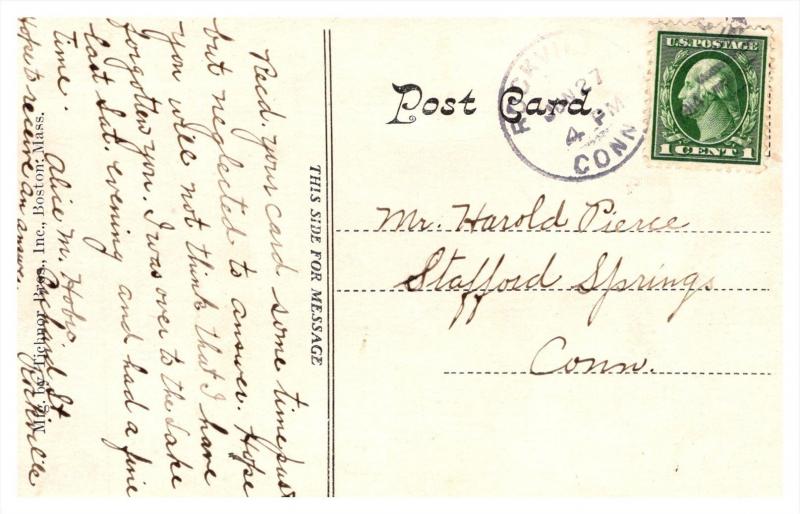 Recd. your card some time past
but neglected to answer. Hope
you will not think that I have
forgotten you. I was over to the Lake
last Sat. evening and had a fine
time.
Alice M. Hobro.
St
Rockville
Hope to receive an answer.
Mfg. by Tichnor Bros., Inc., Boston, Mass.
THIS SIDE FOR MESSAGE
Post Card.
ROCKVILLE
JUN 27
4 PM
CONN
U.S. POSTAGE
1 CENT 1
Mr. Harold Pierce
Stafford Springs
Conn.